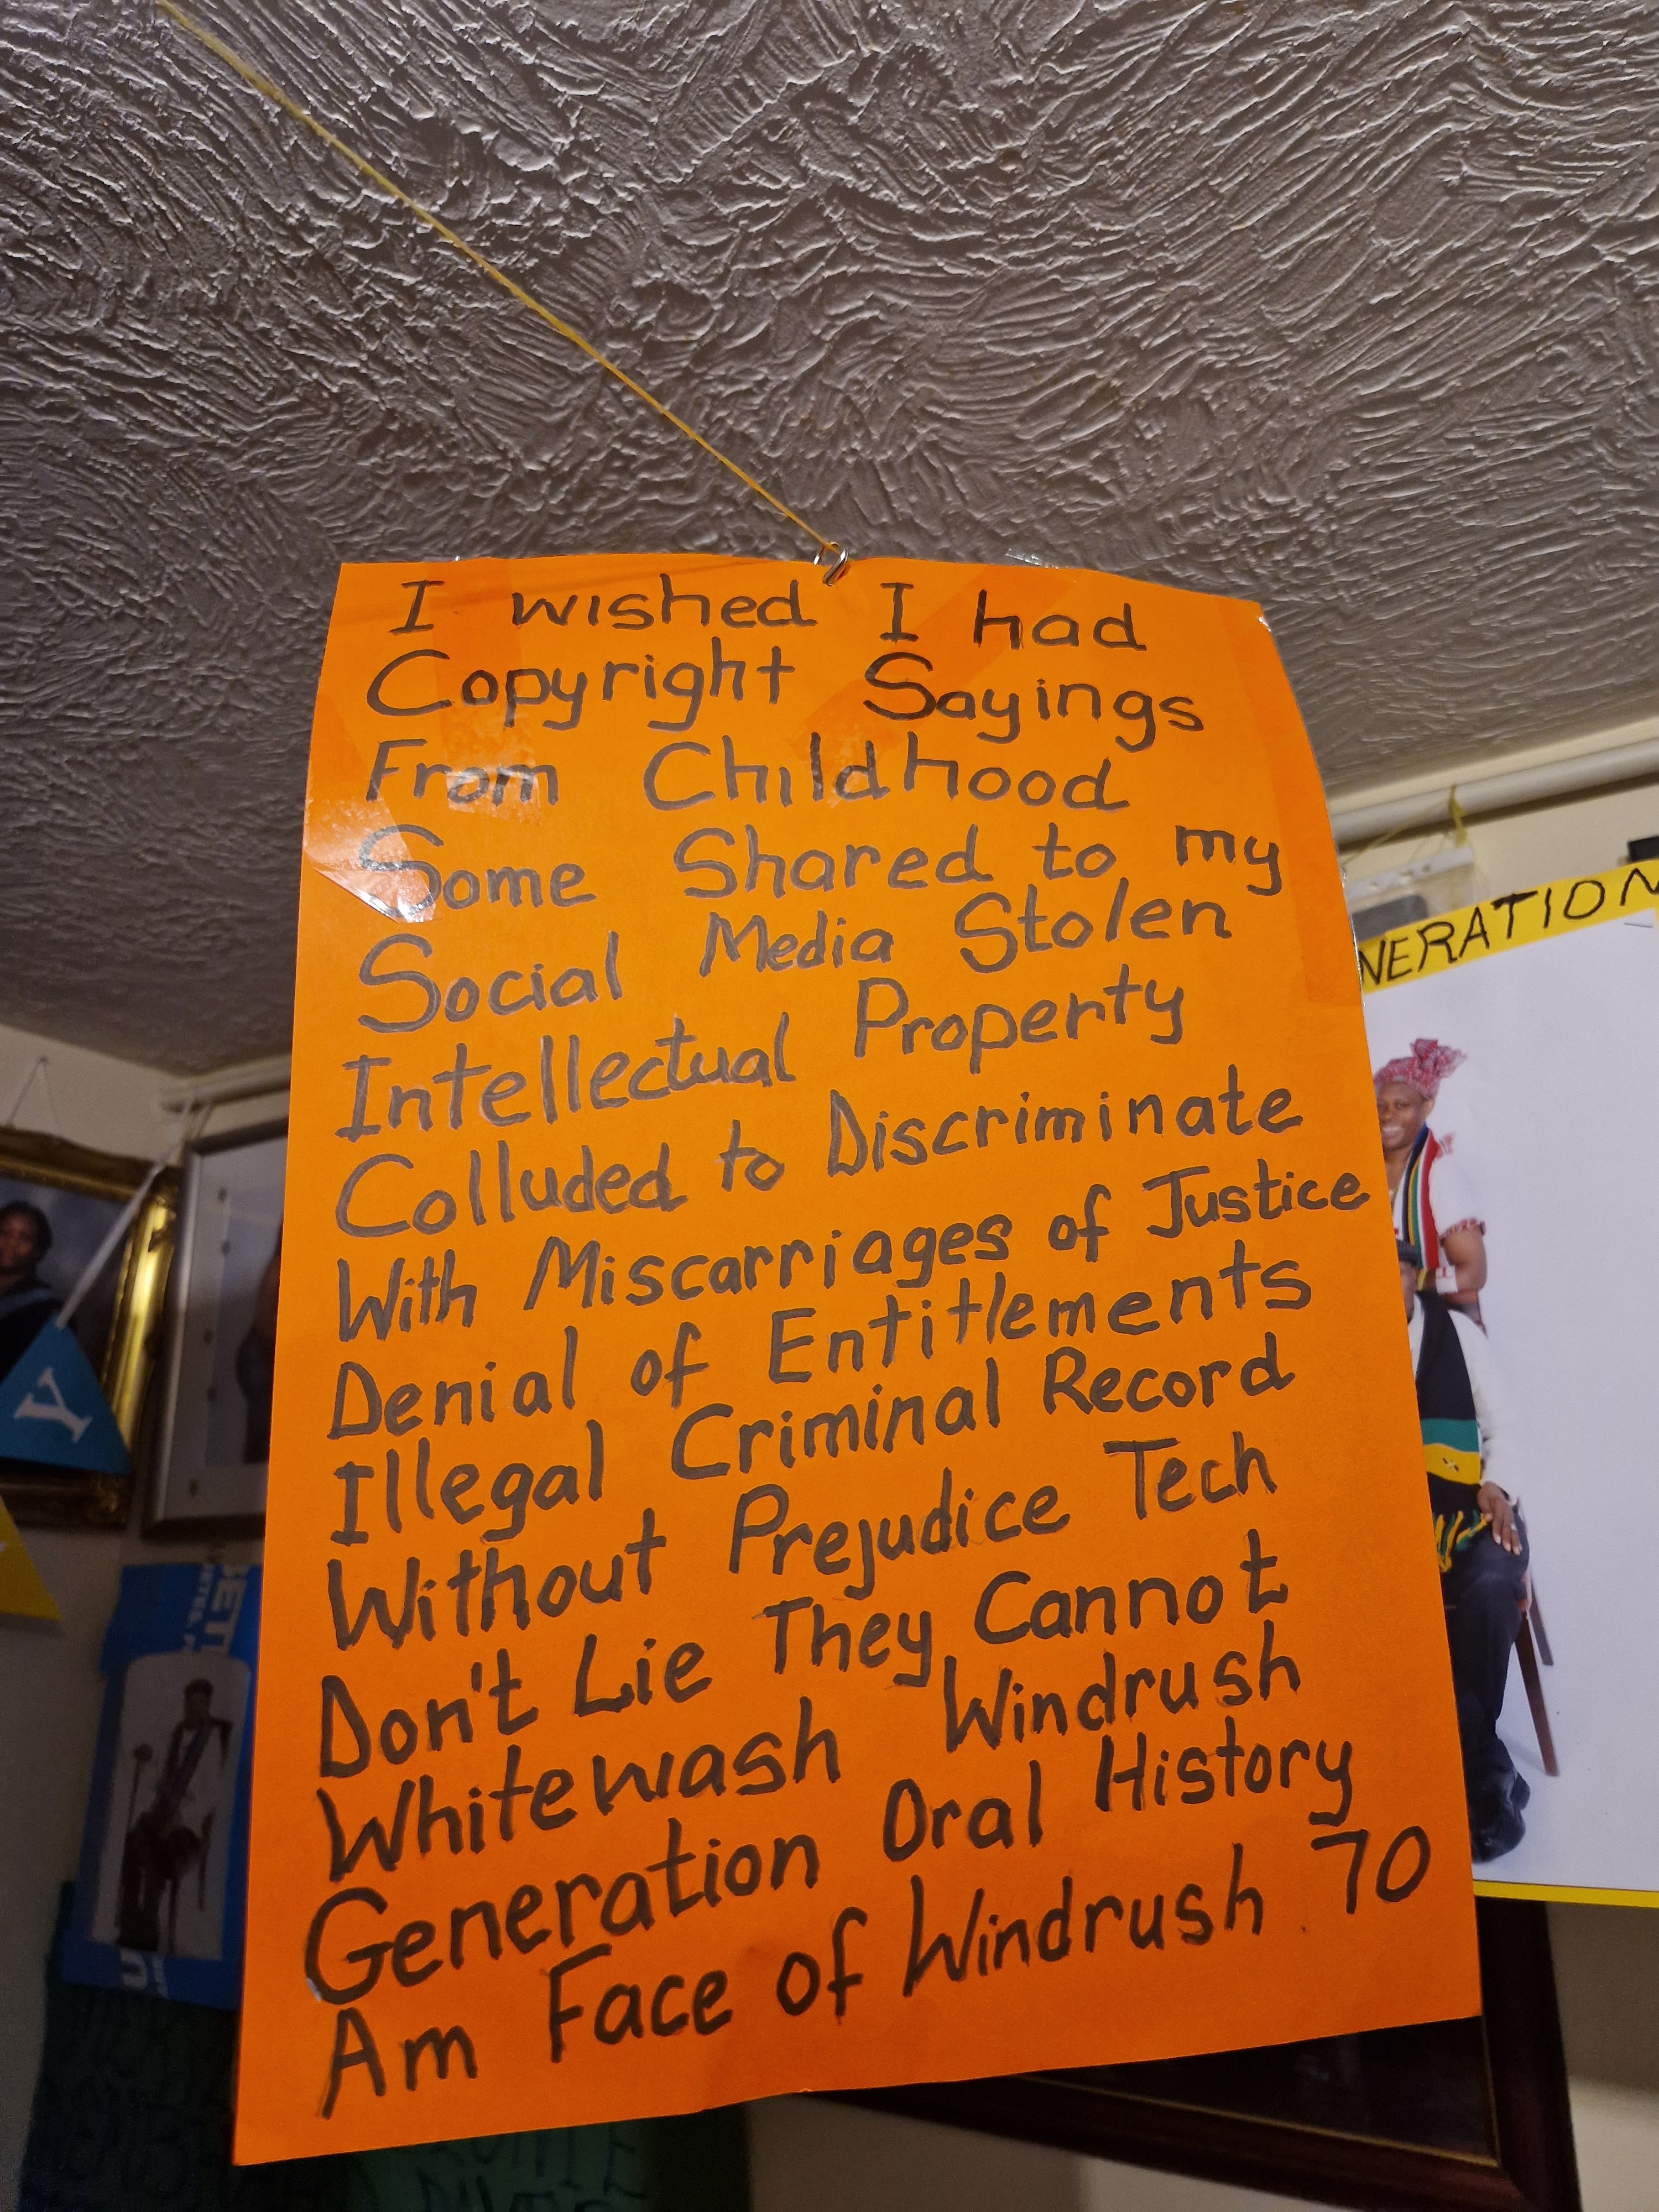 I wished I had
Copyright Sayings
From Childhood
Some Shared to my
Social Media Stolen
Intellectual Property
Colluded to Discriminate
With Miscarriages of Justice
Denial of Entitlements
Illegal Criminal Record
Without Prejudice Tech
Don't Lie They Cannot
Whitewash Windrush
Generation Oral History
Am Face of Windrush 70
NERATION
Y